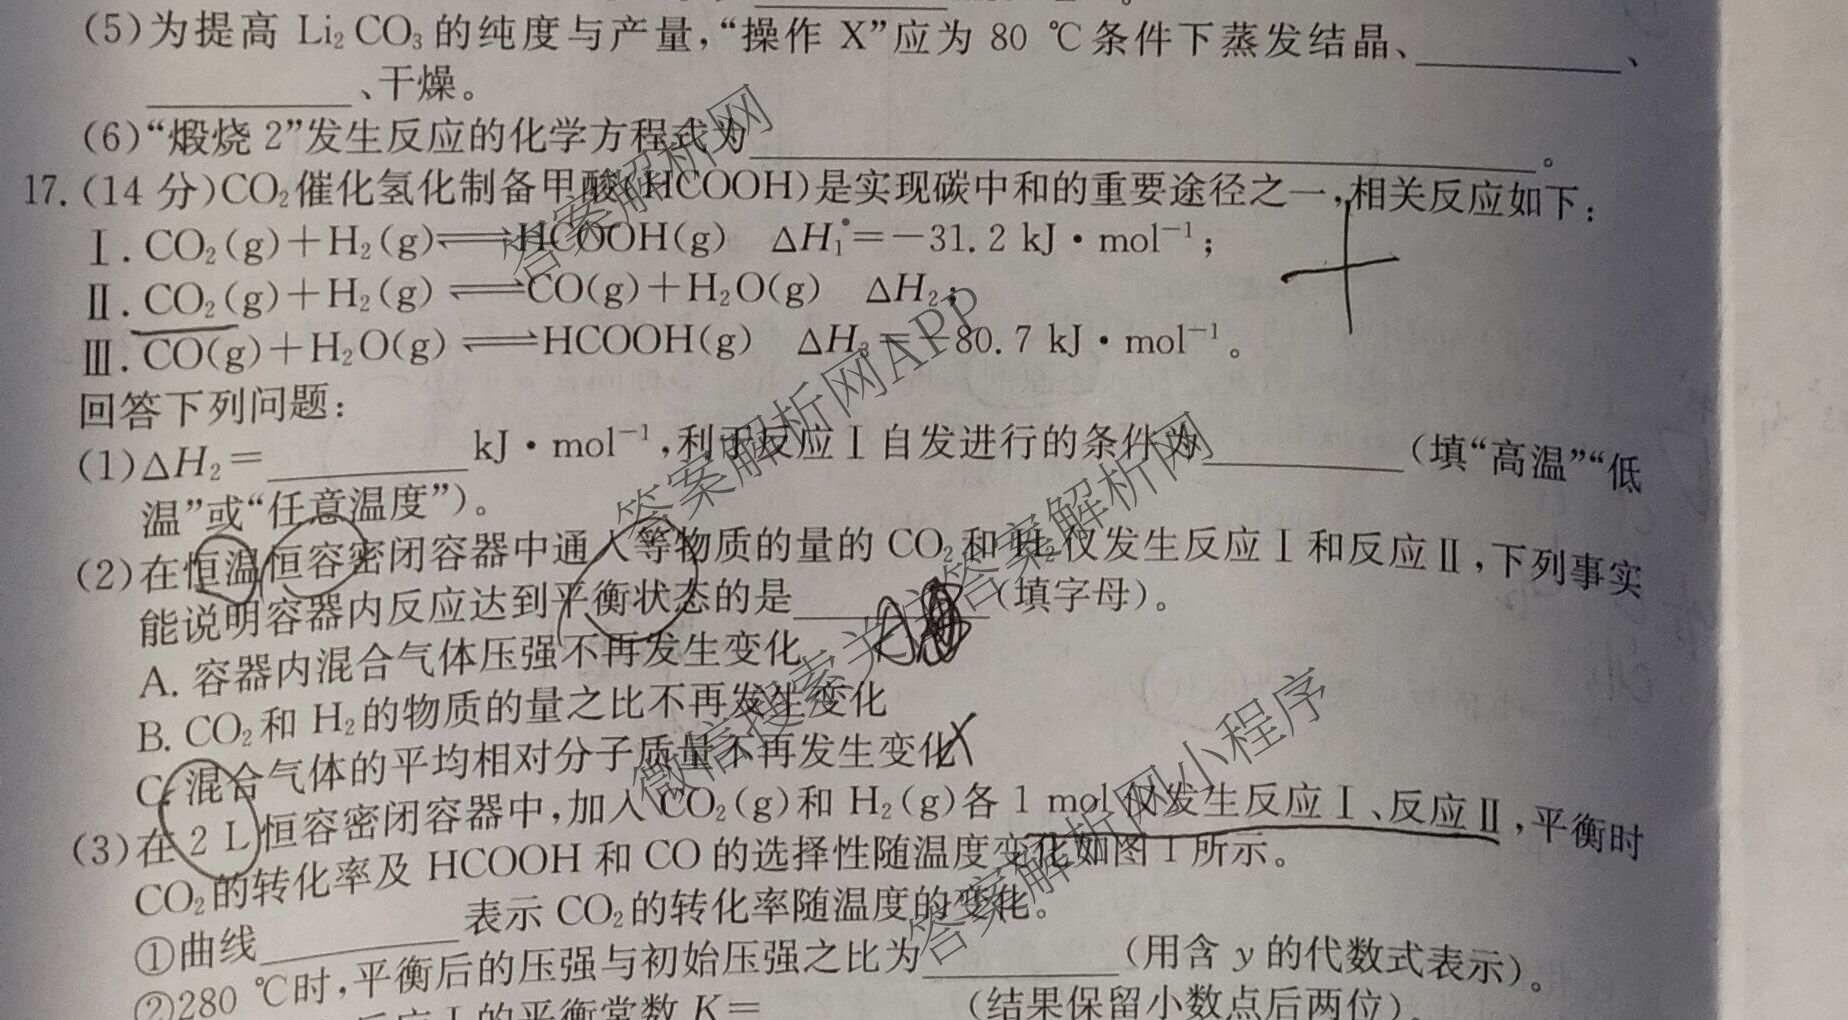 (5)为提高 Li₂CO₃的纯度与产量,“操作 X”应为 80 ℃条件下蒸发结晶、________、
________、干燥。
(6)“煅烧 2”发生反应的化学方程式为________________。
17.(14 分)CO₂催化氢化制备甲酸(HCOOH)是实现碳中和的重要途径之一,相关反应如下:
Ⅰ.CO₂(g)+H₂(g)⇌HCOOH(g) ΔH₁=−31.2 kJ·mol⁻¹;
Ⅱ.CO₂(g)+H₂(g)⇌CO(g)+H₂O(g) ΔH₂;
Ⅲ.CO(g)+H₂O(g)⇌HCOOH(g) ΔH₃=−80.7 kJ·mol⁻¹。
回答下列问题:
(1)ΔH₂=________kJ·mol⁻¹,利于反应Ⅰ自发进行的条件为________(填“高温”“低
温”或“任意温度”)。
(2)在恒温恒容密闭容器中通入等物质的量的 CO₂和 H₂仅发生反应Ⅰ和反应Ⅱ,下列事实
能说明容器内反应达到平衡状态的是________(填字母)。
A. 容器内混合气体压强不再发生变化
B. CO₂和 H₂的物质的量之比不再发生变化
C. 混合气体的平均相对分子质量不再发生变化
(3)在 2 L 恒容密闭容器中,加入 CO₂(g)和 H₂(g)各 1 mol 仅发生反应Ⅰ、反应Ⅱ,平衡时
CO₂的转化率及 HCOOH 和 CO 的选择性随温度变化如图 1 所示。
①曲线________表示 CO₂的转化率随温度的变化。
②280 ℃时,平衡后的压强与初始压强之比为________(用含 y 的代数式表示)。
反应Ⅰ的平衡常数 K=________(结果保留小数点后两位)
答案解析网
答案解析网APP
微信搜索关注答案解析网
答案解析网小程序